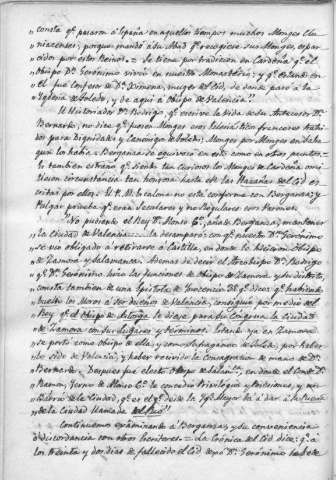 consta q.e pasaron á España en aquellos tiempos muchos Monges Clu
niacenses, porque mandó á su Abad q.e recogiese sus Monges, espar
cidos por estos Reinos. = Se tiene por tradicion en Cardeña q.e el
Obispo D.n Gerónimo vivió en nuestro Monasterio; y q.e estando en
el fue Confesor de D.a Ximena, muger del Cid, de donde pasó a la
Iglesia de Toledo, y de aqui á Obispo de Valencia."
El Historiador D.n Rodrigo, q.e escrive la vida de su Antecesor D.n
Bernardo, no dice q.e fuesen Monges esos Eclesiasticos franceses traidos
por Dignidades y Canonigos de Toledo; Monges por Monges endaba
que los había = Berganza se equivoca en esto como en otros puntos =
Es tambien estraño q.e siendo tan curiosos los Monges de Cardeña omi
tiesen circunstancia tan honrosa hasta en las Hazañas del Cid es
critas por ellos: El P. M. Escalona no está conforme con Berganza; y
Pulgar prueba q.e eran Seculares y no Regulares esos Varones
"No pudiente el Rey D.n Alonso 6.º, añade Berganza, mantener
la Ciudad de Valencia = la desamparó: con q.e nuestro D.n Gerónimo
se vió obligado á retirarse á Castilla, en donde le hicieron Obispo
de Zamora y Salamanca. Ademas de decir el Arzobispo D.n Rodrigo
q.e D.n Gerónimo hizo las funciones de Obispo de Zamora y su distrito,
consta tambien de una Epístola de Inocencio III q.e dice: q.e habiendo
buelto los Moros á ser dueños de Valencia, consiguió por medio del
Rey q.e el Obispo de Astorga le diese para su Congrua la Ciudad
de Zamora con sus Lugares y terminos. Estando ya en Zamora
se portó como Obispo de ella, y como sufraganeo de Toledo, por haber
sido de Valencia; y haber recivido la Consagracion de mano de D.n
Bernardo = Despues fué electo Obispo de Salam.ca, en donde el Conde D.n
Ramon, Yerno de Alonso 6.º le concedió Privilegios y Posesiones, y un
de la Ciudad, q.e es el q.e desde la Yg.a Mayor bá á dar á la Puerta
de la Ciudad llamada del Rio."
Continuemos examinando á Berganza, y su conveniencia
ó discordancia con otros Escritores = La Crónica del Cid dice: q.e á
los treinta y dos dias de fallecido el Cid